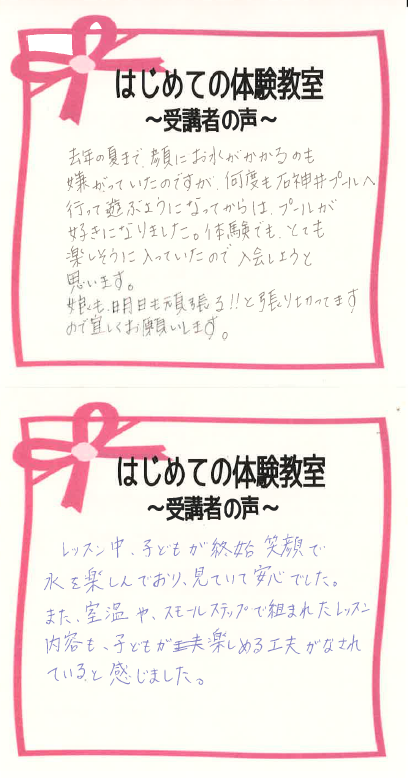 はじめての体験教室
～受講者の声～
去年の夏まで、顔にお水がかかるのも
嫌がっていたのですが、何度も石神井プールへ
行って遊ぶようになってからは、プールが
好きになりました。体験でも、とても
楽しそうに入っていたので入会しようと
思います。
娘も、明日も頑張る!!と張り切ってます
ので宜しくお願いします。
はじめての体験教室
～受講者の声～
レッスン中、子どもが終始笑顔で
水を楽しんでおり、見ていて安心でした。
また、室温や、スモールステップで組まれたレッスン
内容も、子どもが楽しめる工夫がなされ
ていると感じました。